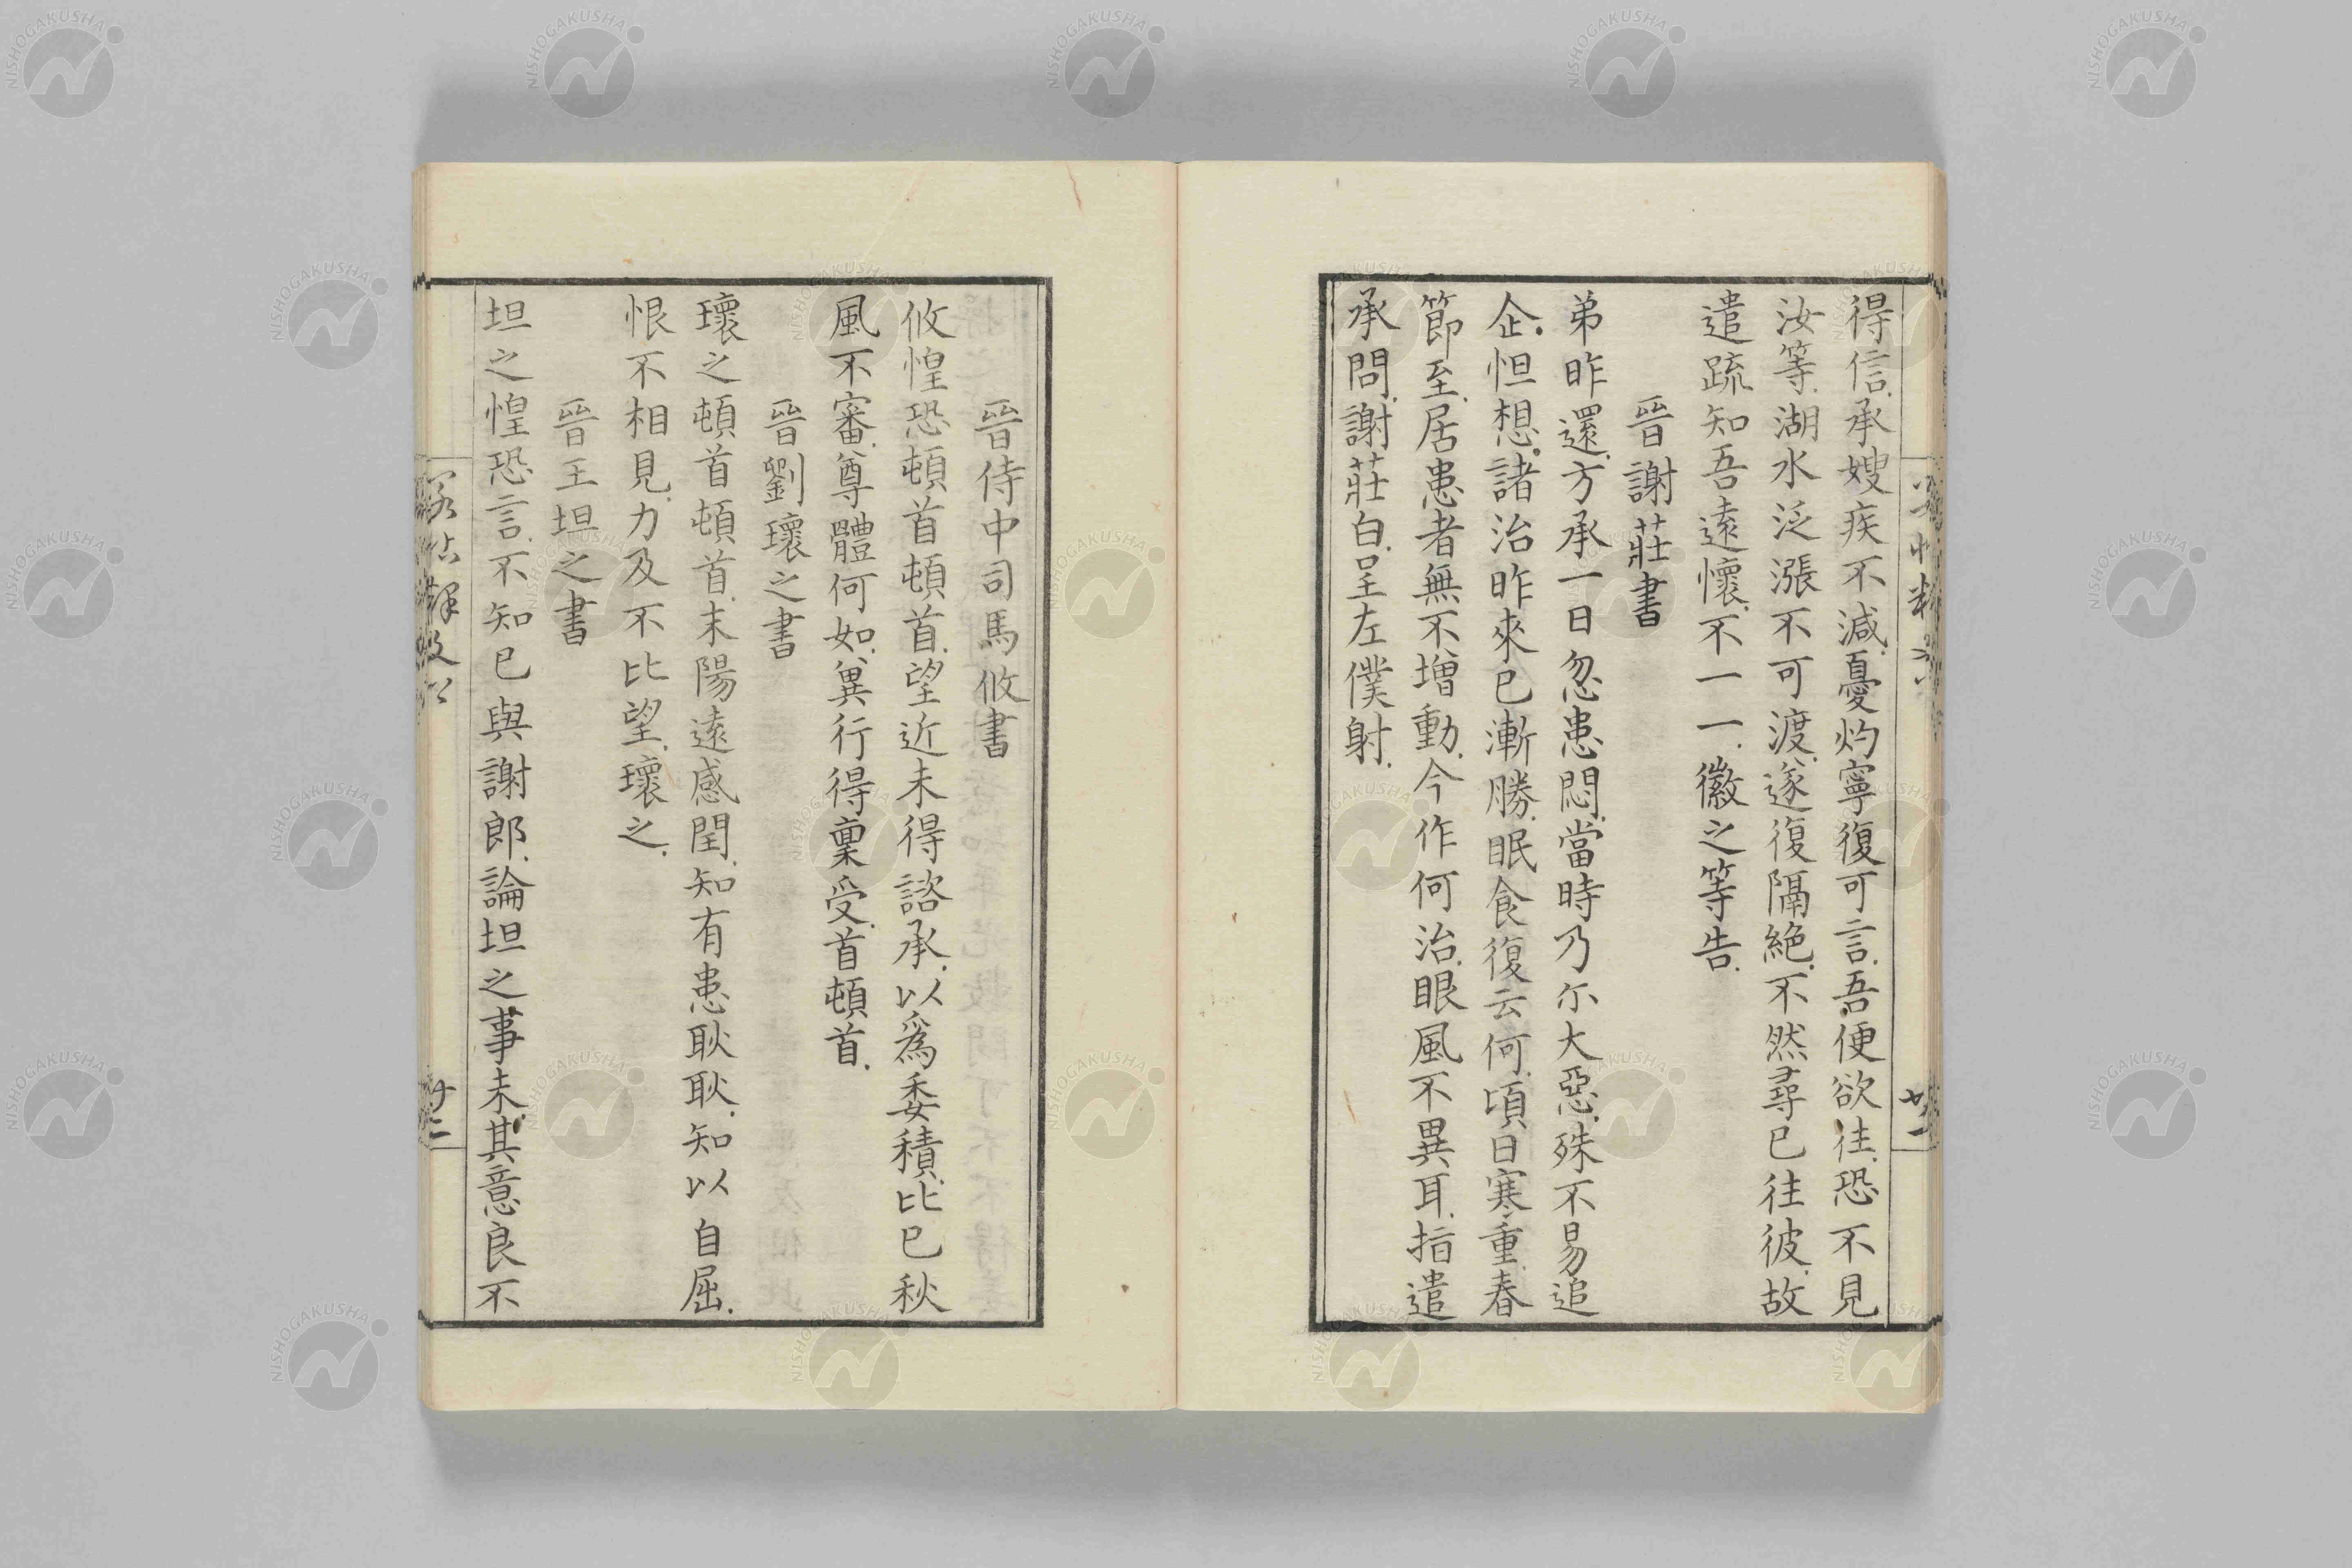 得信承嫂疾不減憂灼寧復可言吾便欲往恐不見
汝等湖水泛漲不可渡遂復隔絶不然尋已往彼故
遣疏知吾遠懷不一一徽之等告
晉謝莊書
弟昨還方承一日忽患悶當時乃尒大惡殊不易追
企怛想諸治昨來已漸勝眠食復云何頃日寒重春
節至居患者無不增動今作何治眼風不異耳指遣
承問謝莊白呈左僕射
廿一
晉侍中司馬攸書
攸惶恐頓首頓首望近未得諮承以爲委積比已秋
風不審尊體何如兾行得稟受首頓首
晉劉瓌之書
瓌之頓首頓首末陽遠感閏知有患耿耿知以自屈
恨不相見力及不比望瓌之
晉王坦之書
坦之惶恐言不知已與謝郎論坦之事未其意良不
廿二
NISHOGAKUSHA